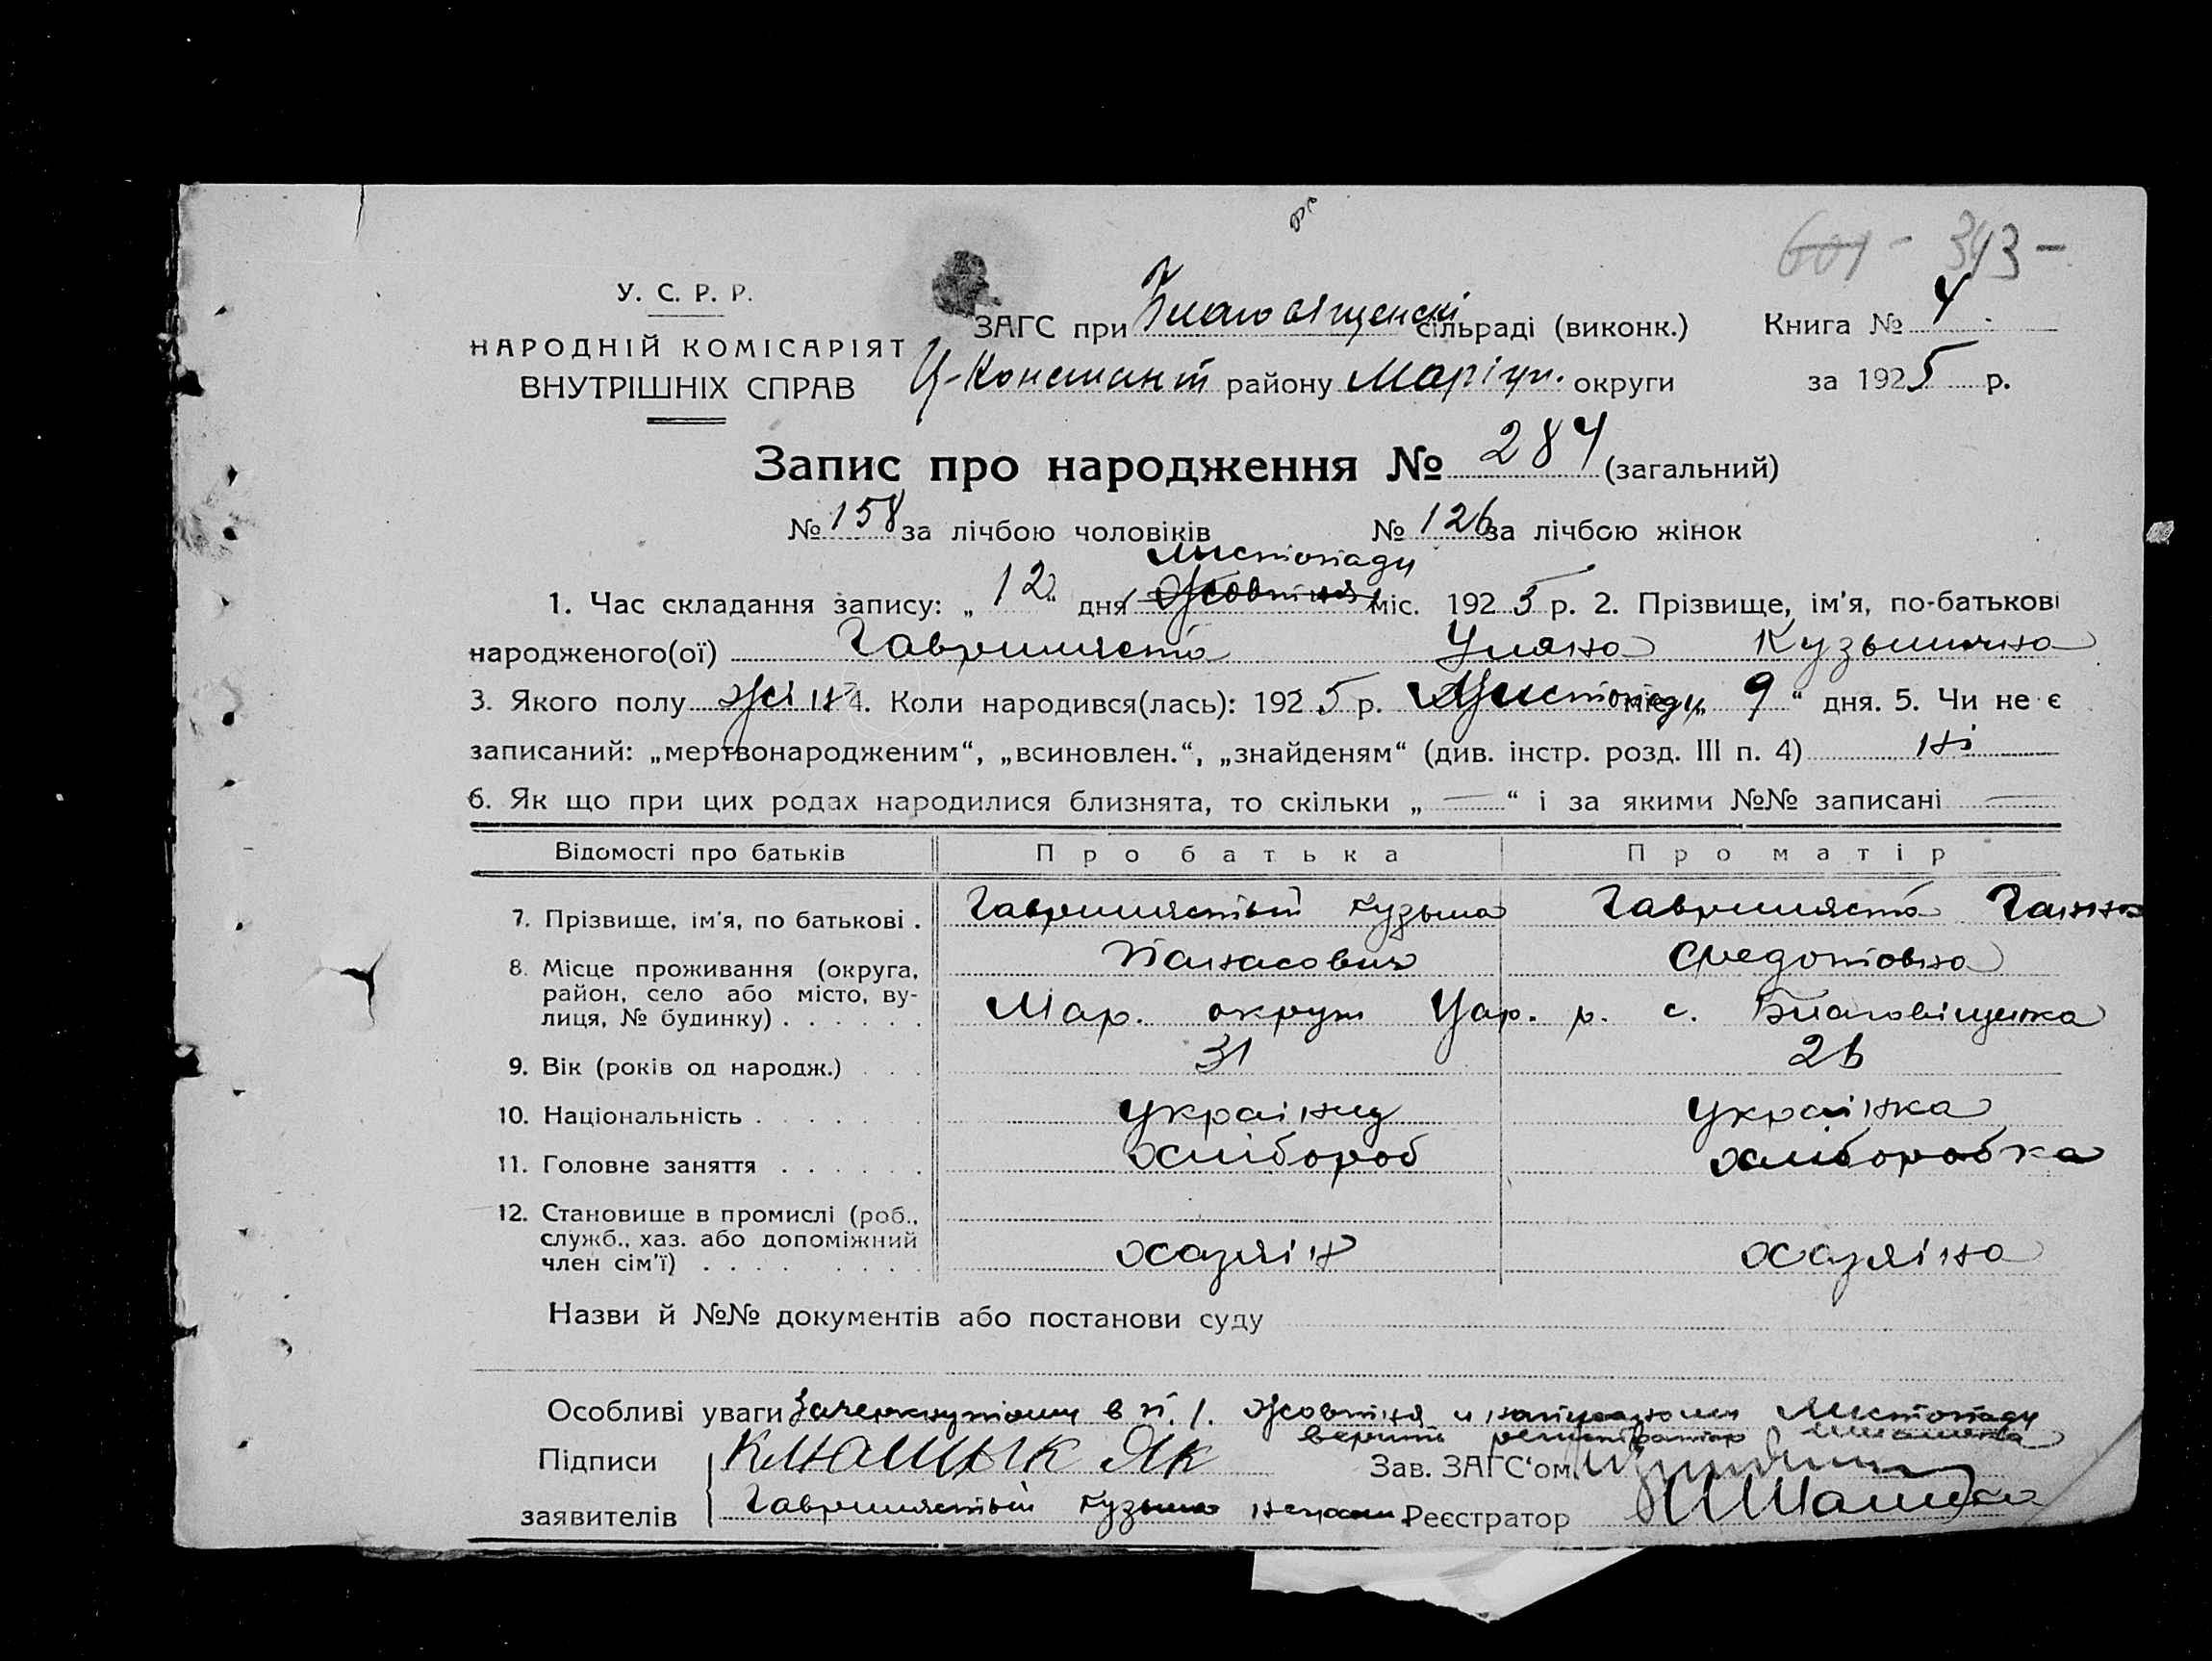 601 - 343 -
У. С. Р. Р.
НАРОДНІЙ КОМІСАРІЯТ
ВНУТРІШНІХ СПРАВ
ЗАГС при Благовіщенскі сільраді (виконк.) Книга № 4
Ц-Констант району Маріуп. округи за 1925 р.
Запис про народження № 284 (загальний)
№ 158 за лічбою чоловіків № 126 за лічбою жінок
листопаду
1. Час складання запису: „ 12 “ дня Жовтня міс. 1925 р. 2. Прізвище, ім'я, по-батькові
народженого(ої) Уляна Кузьминична
3. Якого полу жін 4. Коли народився(лась): 1925 р. Листопаду „ 9 “ дня. 5. Чи не є
записаний: „мертвонародженим“, „всиновлен.“, „знайденям“ (див. інстр. розд. III п. 4) ні
6. Як що при цих родах народилися близнята, то скільки „ — “ і за якими №№ записані —
Відомості про батьків Про батька Про матір
7. Прізвище, ім'я, по батькові . Кузьма Ганна
Панасович Федотовна
8. Місце проживання (округа,
район, село або місто, ву-
лиця, № будинку) . . . . . . Мар. округи Цар. р. с. Благовіщенка
9. Вік (років од народж.) . . . 31 26
10. Національність . . . . . . . українец українка
11. Головне заняття . . . . . . хлібороб хліборобка
12. Становище в промислі (роб.,
служб., хаз. або допоміжний
член сім'ї) . . . . . . . . хазяїн хазяїна
Назви й №№ документів або постанови суду
Особливі уваги Зачеркнутому в п. 1. Жовтня и Листопаду
верить
Підписи Зав. ЗАГС'ом
заявителів Кузьма неграм. Реєстратор